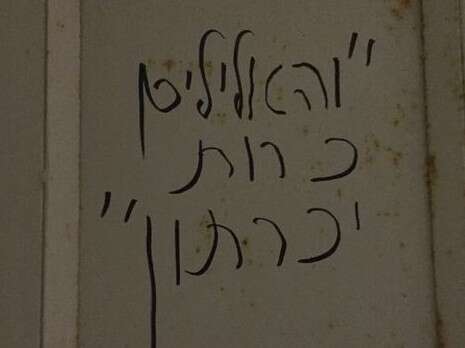 "והאלילים
כרות
יכרתון"